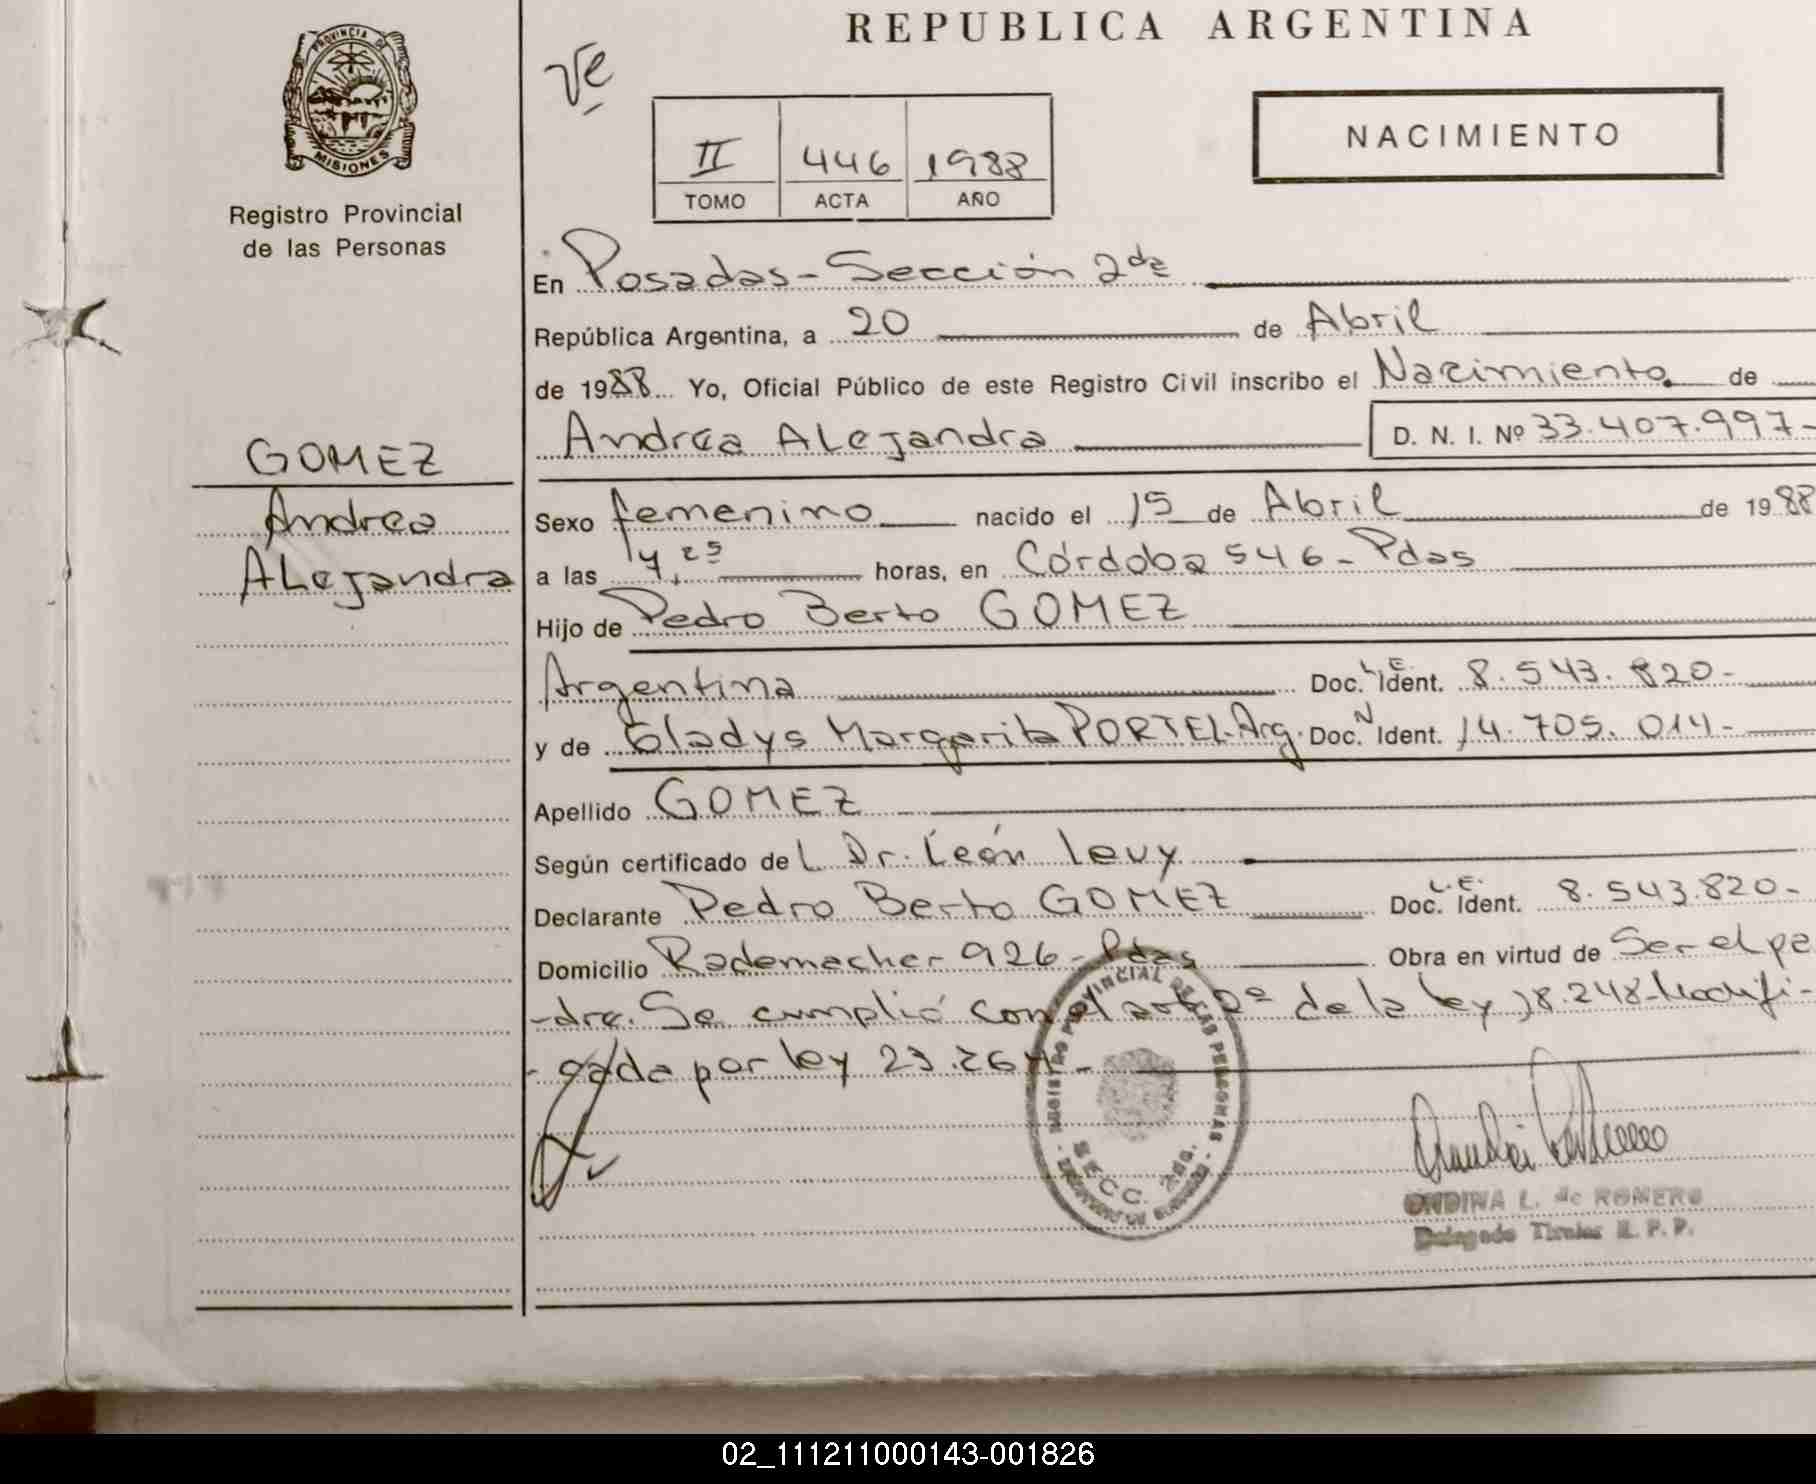 REPUBLICA ARGENTINA
PROVINCIA DE
MISIONES
Registro Provincial
de las Personas
Ve
II 446 1988
TOMO ACTA AÑO
NACIMIENTO
En Posadas - Sección 2da
República Argentina, a 20 de Abril
de 1988 Yo, Oficial Público de este Registro Civil inscribo el Nacimiento de
Andrea Alejandra D. N. I. Nº 33.407.997-
GOMEZ
Andrea
Alejandra
Sexo femenino nacido el 15 de Abril de 1988
a las horas, en Córdoba 546 - Pdas
Hijo de Pedro Berto GOMEZ
Argentina Doc. L.E. Ident. 8.543.820-
y de Gladys Margarita PORTEL. Arg. Doc. N Ident. 14.705.014-
Apellido GOMEZ
Según certificado del Dr. León Levy
Declarante Pedro Berto GOMEZ Doc. L.E. Ident. 8.543.820-
Domicilio Rademacher 926 - Pdas Obra en virtud de Ser el pa
-dre. Se cumplió con el art 2º de la ley 18.248 - Modifi-
-cada por ley 23.264 -
REGISTRO PROVINCIAL DE LAS PERSONAS
SECC. 2da.
ONDINA L. de ROMERO
Delegado Titular R. P. P.
02_111211000143-001826